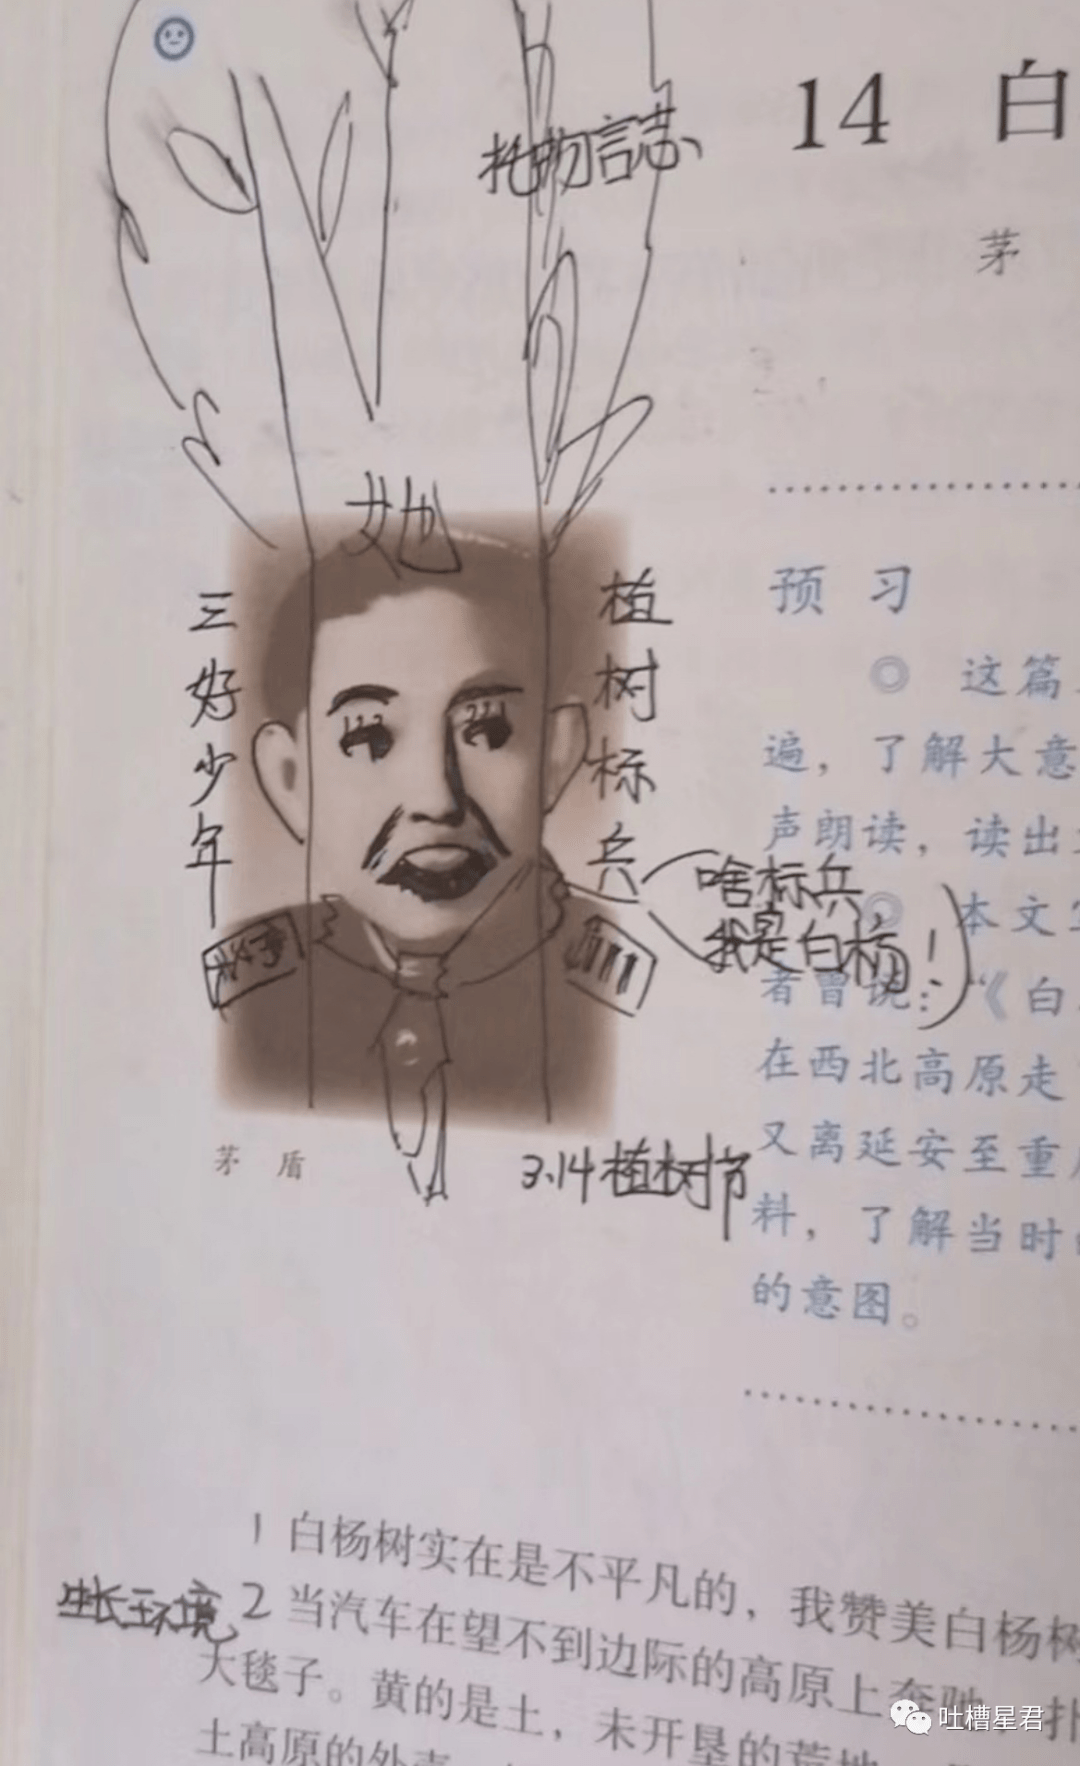 托物言志
14 白
茅
她
三好少年
植树标兵
啥标兵
我是白杨！
茅 盾
3.14植树节
预 习
◎ 这篇
遍，了解大意
声朗读，读出
◎ 本文
者曾说：“《白
在西北高原走
又离延安至重
料，了解当时
的意图。
1 白杨树实在是不平凡的，我赞美白杨树
生长环境
2 当汽车在望不到边际的高原上奔驰，扑
大毯子。黄的是土，未开垦的荒地
土高原的外壳
吐槽星君